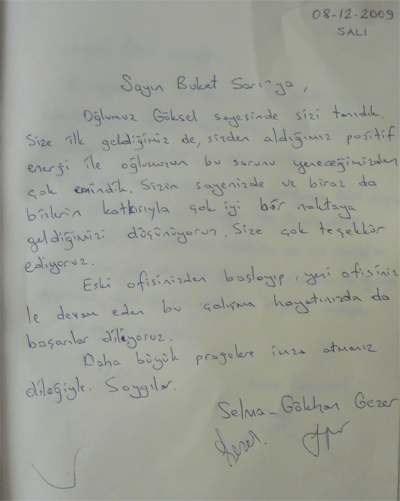 08-12-2009
SALI
Sayın Buket Sarı-ya,
Oğlumuz Göksel sayesinde sizi tanıdık.
Size ilk geldiğimiz de, sizden aldığımız pozitif
enerji ile oğlumuzun bu sorunu yeneceğimizden
çok emindik. Sizin sayenizde ve biraz da
bizlerin katkısıyla çok iyi bir noktaya
geldiğimizi düşünüyoruz. Size çok teşekkür
ediyoruz.
Eski ofisinizden başlayıp, yeni ofisiniz
le devam eden bu çalışma hayatınızda da
başarılar diliyoruz.
Daha büyük projelere imza atmanız
dileğiyle. Saygılar.
Selma-Gökhan Gezer